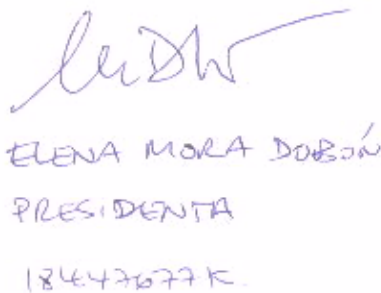 ELENA MORA DOBÓN
PRESIDENTA
18447677K